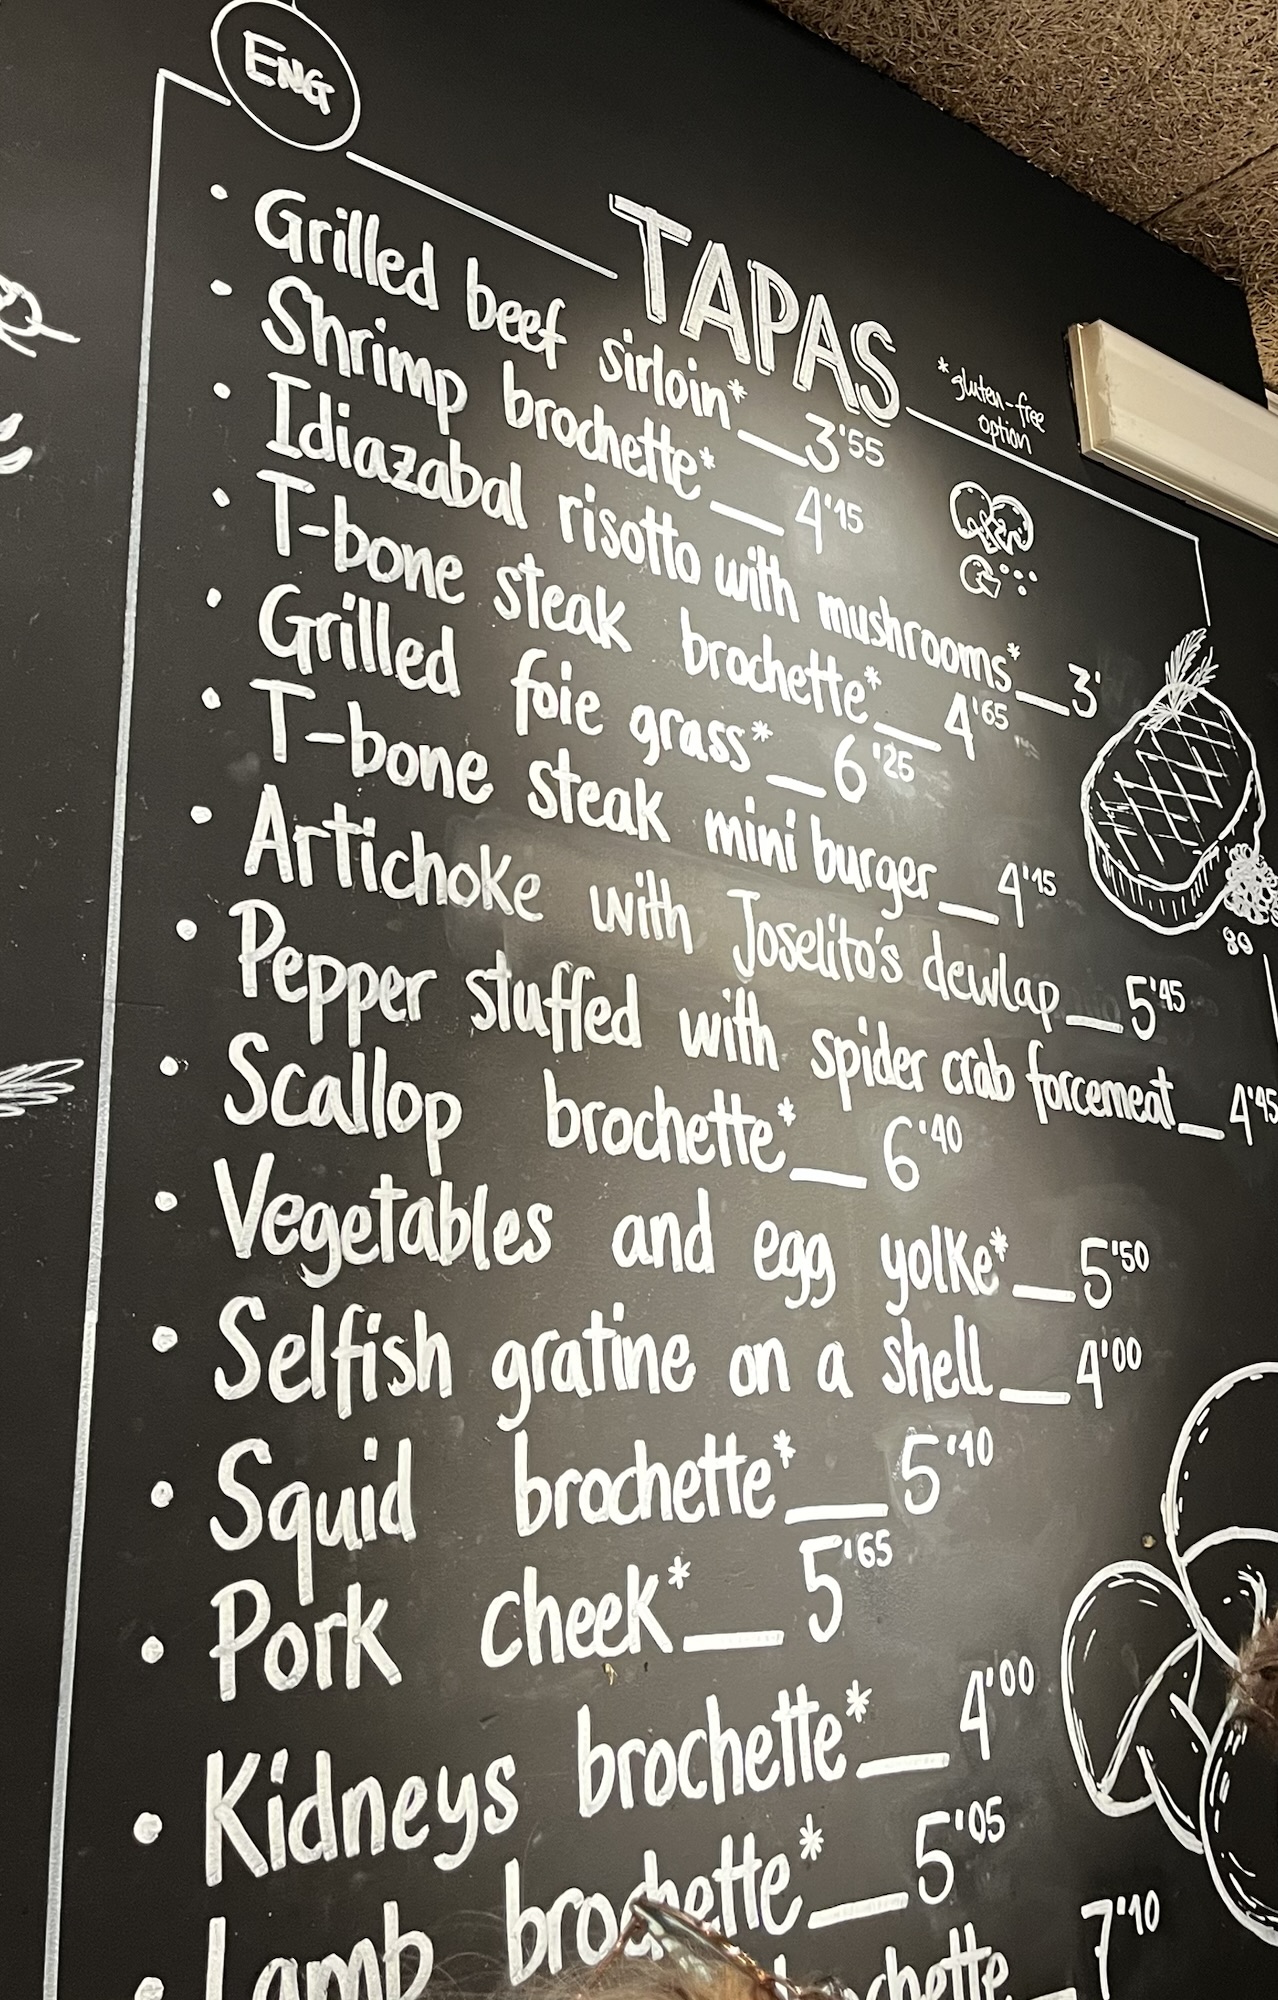 ENG
TAPAS
*gluten-free
option
• Grilled beef sirloin*__3'55
• Shrimp brochette*__4'15
• Idiazabal risotto with mushrooms*__3'
• T-bone steak brochette*__4'65
• Grilled foie grass*__6'25
• T-bone steak mini burger__4'15
• Artichoke with Joselito's dewlap__5'45
• Pepper stuffed with spider crab forcemeat__4'45
• Scallop brochette*__6'40
• Vegetables and egg yolke*__5'50
• Selfish gratine on a shell__4'00
• Squid brochette*__5'10
• Pork cheek*__5'65
• Kidneys brochette*__4'00
• Lamb brochette*__5'05
7'10